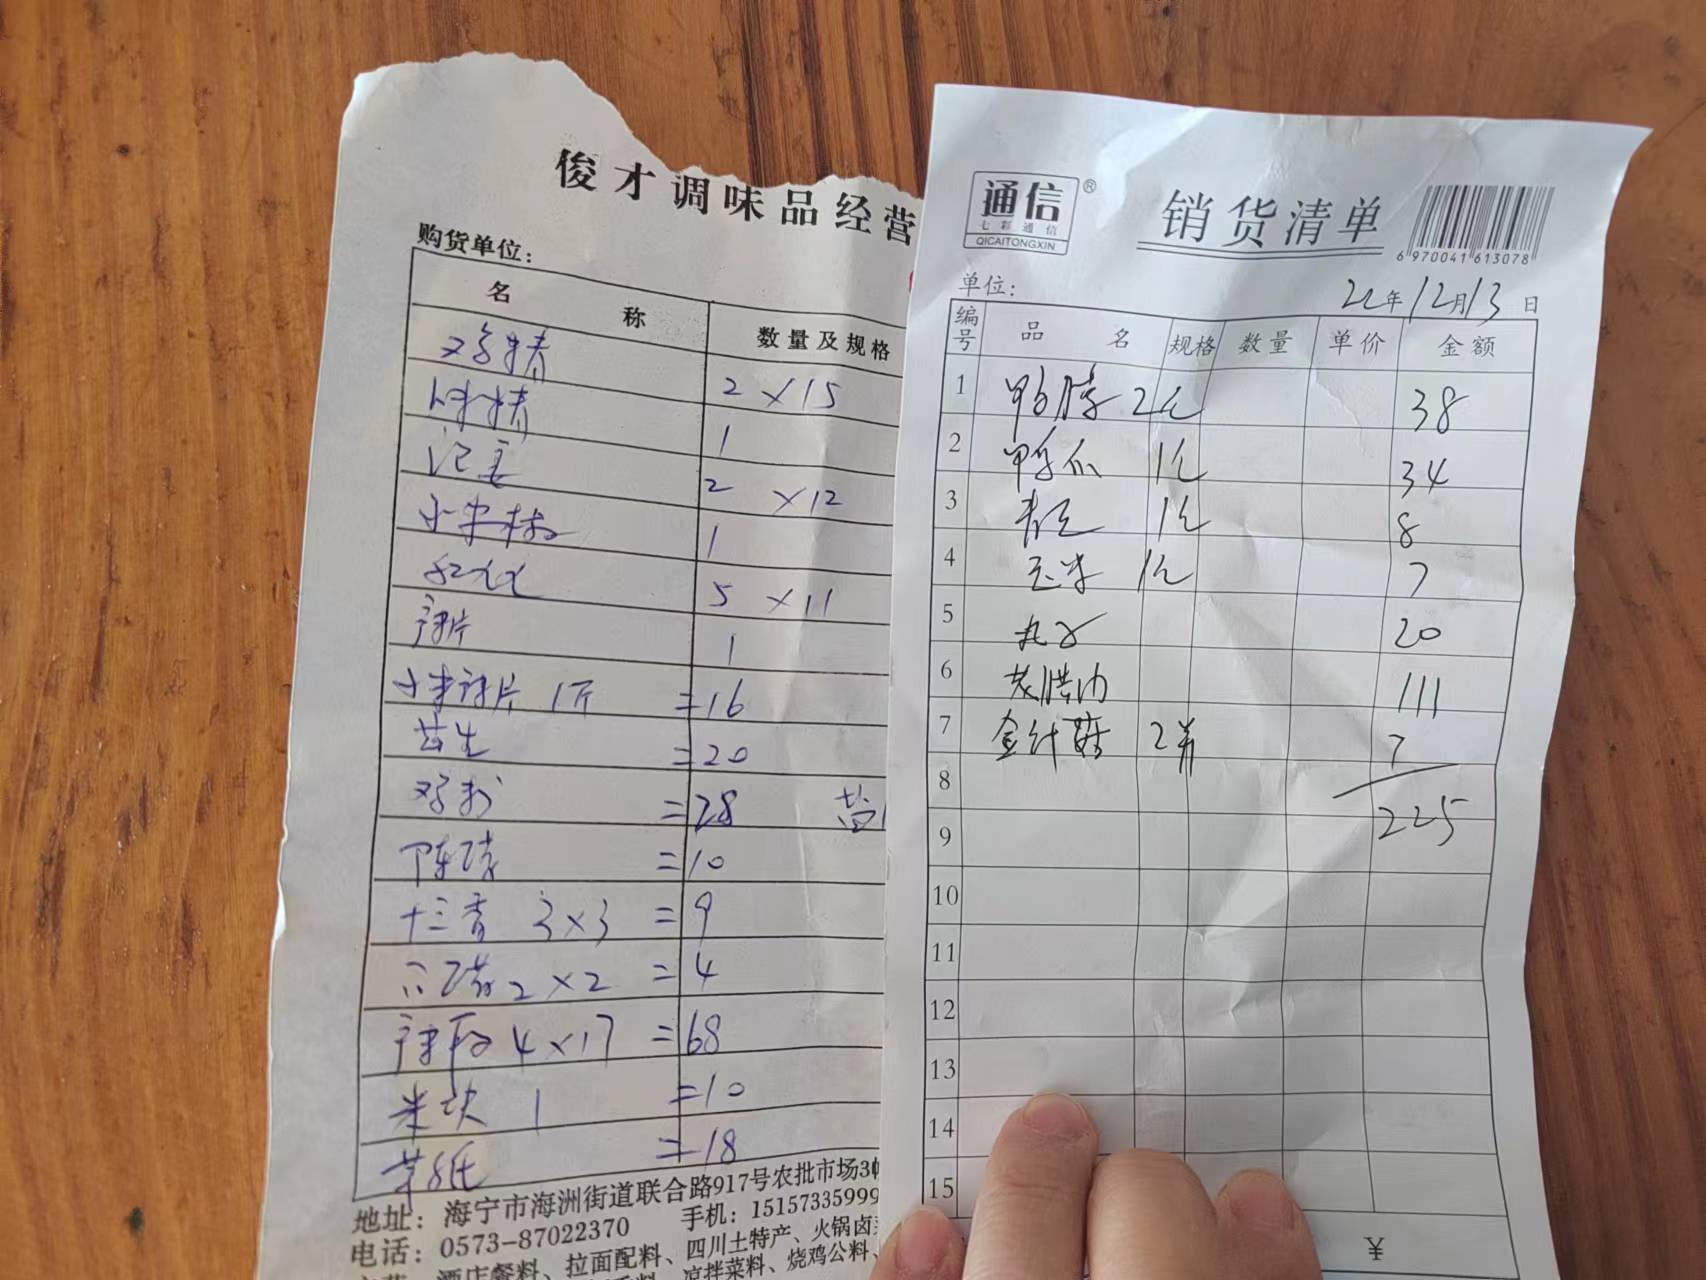 俊才调味品经营
购货单位：
名 称 数量及规格
鸡精 2 × 15
味精 1
2 × 12
小米椒 1
5 × 11
1
小米 片 1斤 =16
花生 =20
=28 盐
陈醋 =10
十三香 3×3 =9
2×2 =4
4×17 =68
米 1 =10
=18
地址：海宁市海洲街道联合路917号农批市场3
电话：0573-87022370 手机：1515733599
酒店餐料、拉面配料、四川土特产、火锅卤
凉拌菜料、烧鸡公料、
通信®
七彩通信
QICAITONGXIN
销货清单
6 970041 613078
单位： 22年12月13日
编号 品 名 规格 数量 单价 金额
1 鸭脖 2包 38
2 鸭爪 1包 34
3 青豆 1包 8
4 玉米 1包 7
5 丸子 20
6 腊肉 111
7 金针菇 2 7
8
225
9
10
11
12
13
14
15
¥